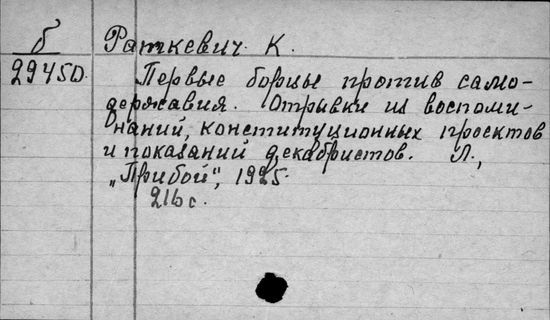 б Раткевич К.
29450. Первые борцы против само-
державия. Отрывки из воспоми-
наний, конституционных проектов
и показаний декабристов. Л.,
„Прибой", 1925.
216 с.